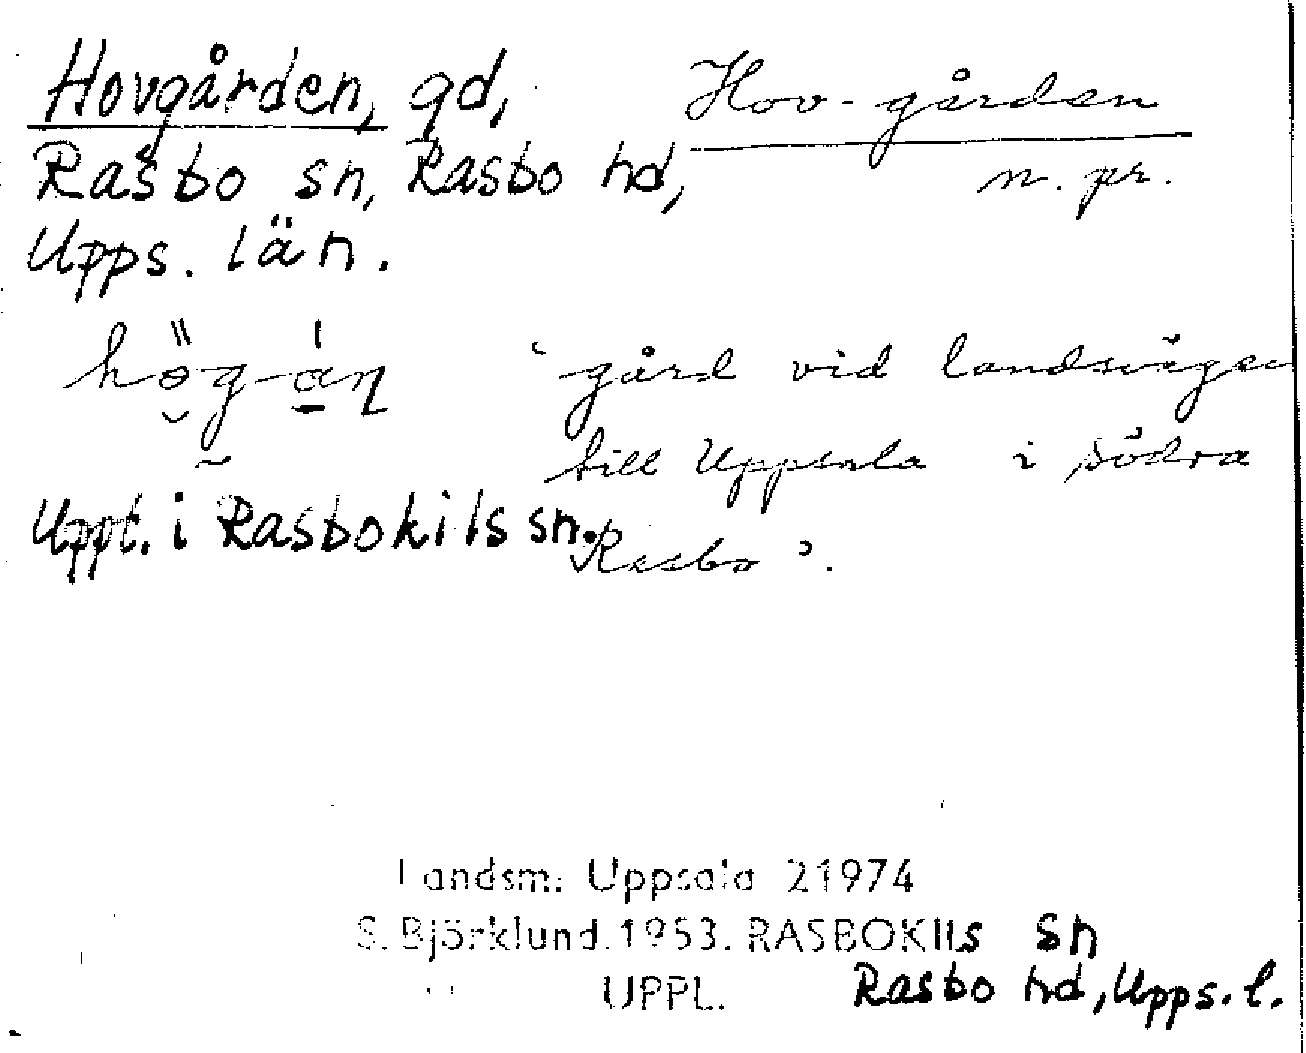 Hovgården, gd,
Rasbo sn, Rasbo hd,
Upps. län.
Hov-gården
n. pr.
'gård vid landsvägen
till Uppsala i södra
Rasbo'.
Uppt. i Rasbokils sn.
Landsm. Uppsala 21974
S. Björklund. 1953. RASBOKILs sn
UPPL. Rasbo hd, Upps. l.